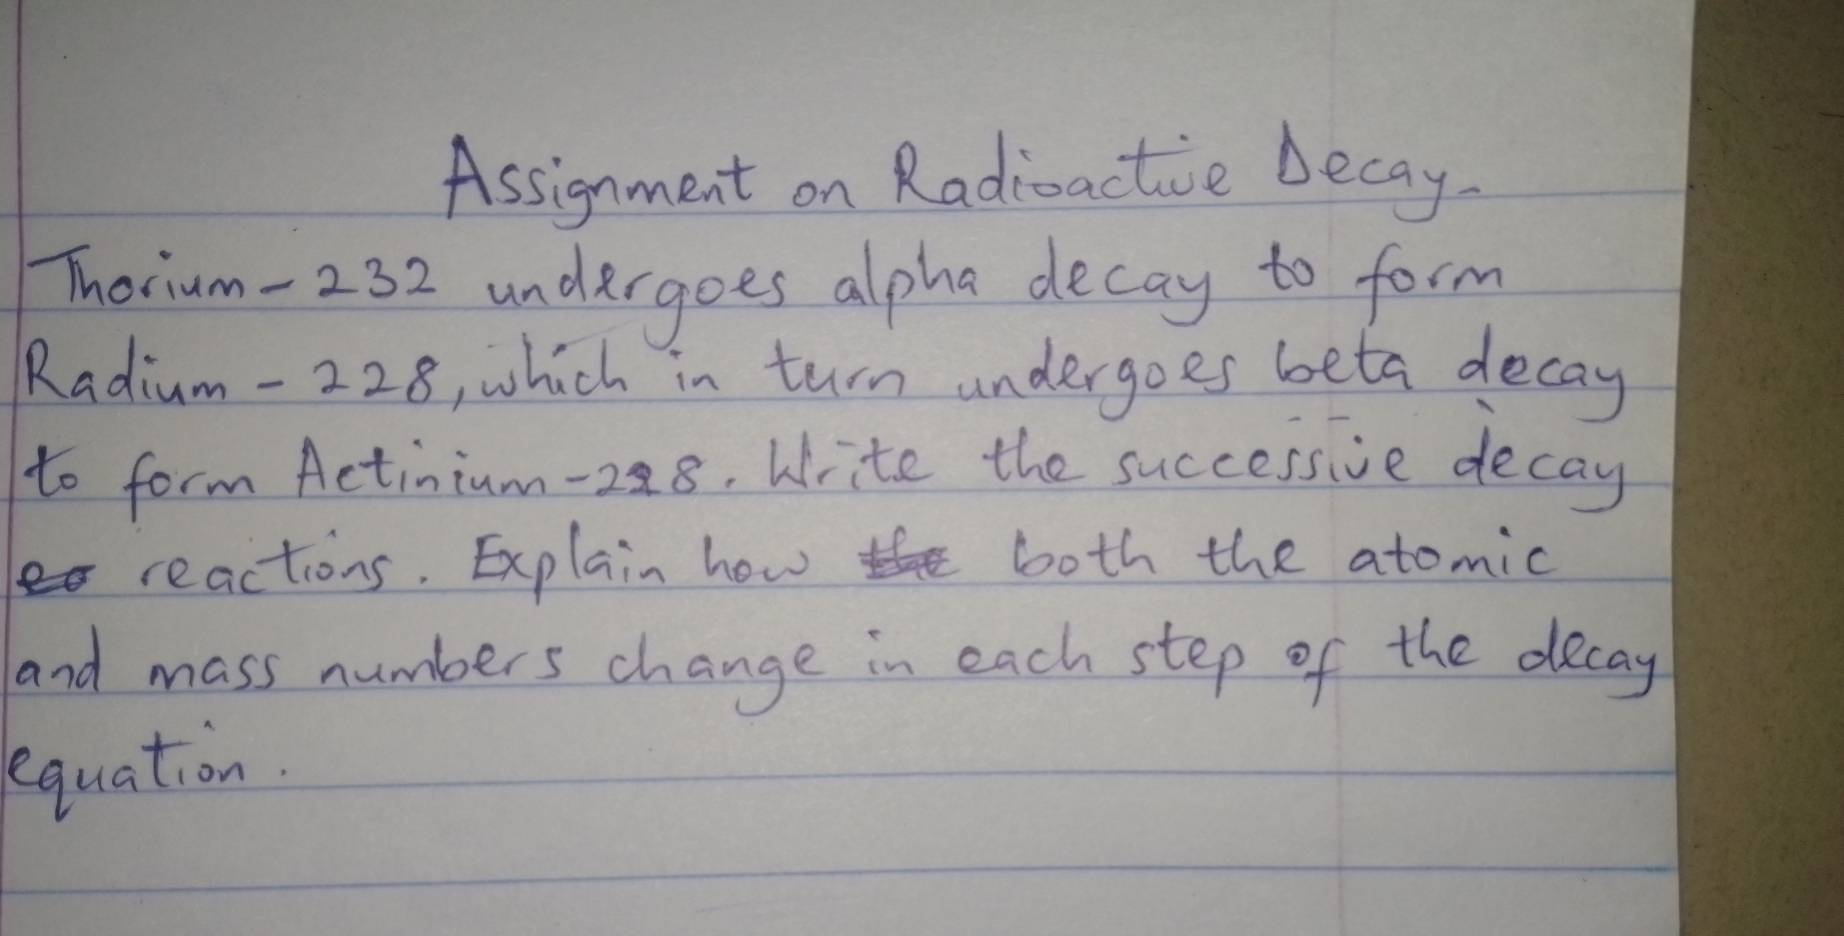 Assignment on Radioactive Decay.
Thorium-232 undergoes alpha decay to form
Radium-228, which in turn undergoes beta decay
to form Actinium-228. Write the successive decay
reactions. Explain how both the atomic
and mass numbers change in each step of the decay
equation.